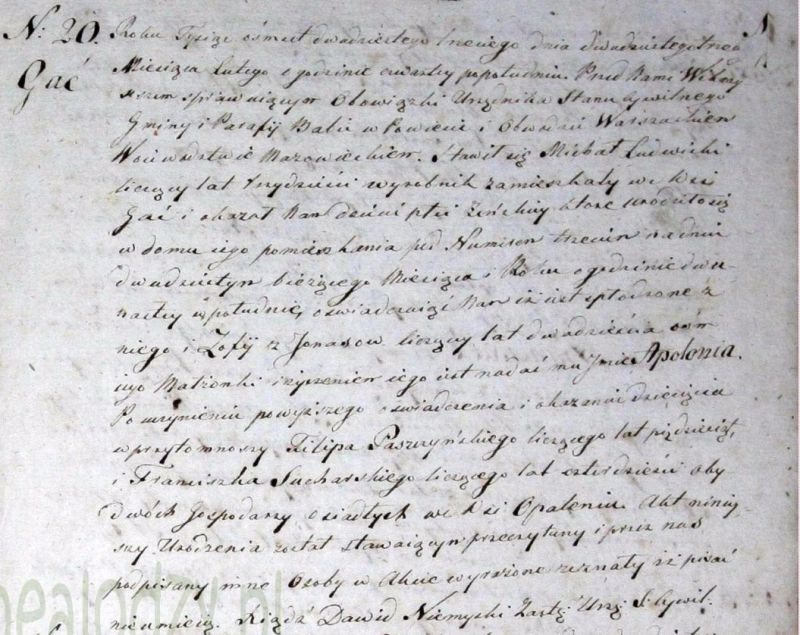 N. 20. Roku Tysiąc ośmset dwudziestego trzeciego dnia dwudziestego trzec
Gać Miesiąca Lutego o godzinie czwartey popołudniu. Przed Nami
szem sprawuiącym Obowiązki Urzędnika Stanu Cywilnego
Gminy i Parafij Babic w Powiecie i Obwodzie Warszawskiem
Woiewodztwie Mazowieckiem. Stawił się Michał Ludwicki
liczący lat trzydzieści wyrobnik zamieszkały we Wsi
Gać i okazał Nam dziecie płci żeńskiey ktore urodziło się
w domu iego pomieszkania pod Numerem trzecim na dniu
dwudziestym bieżącego Miesiąca i Roku o godzinie dwu-
nastey w południe, oświadczaiąc Nam iż iest spłodzone z
niego i Zofij z Jonasow liczący lat dwadzieścia ośm
iego Małżonki i życzeniem iego iest nadać mu Imie Apolonia.
Po uczynieniu powyższego oświadczenia i okazaniu dziecięcia
w przytomnoscy Filipa Paszczyńskiego liczącego lat pięćdziesiąt,
i Franciszka Sucharskiego liczącego lat czterdzieści oby-
dwóch Gospodarzy osiadłych we Wsi Opaleniu. Akt niniey-
szy Urodzenia został stawaiącym przeczytany i przez nas
podpisany mne Osoby w Akcie wyrażone zeznały iż pisać
nieumieią. Xiądz Dawid Niemyski Zastę: Urzę: S. Cywil.
pealodzy.pl